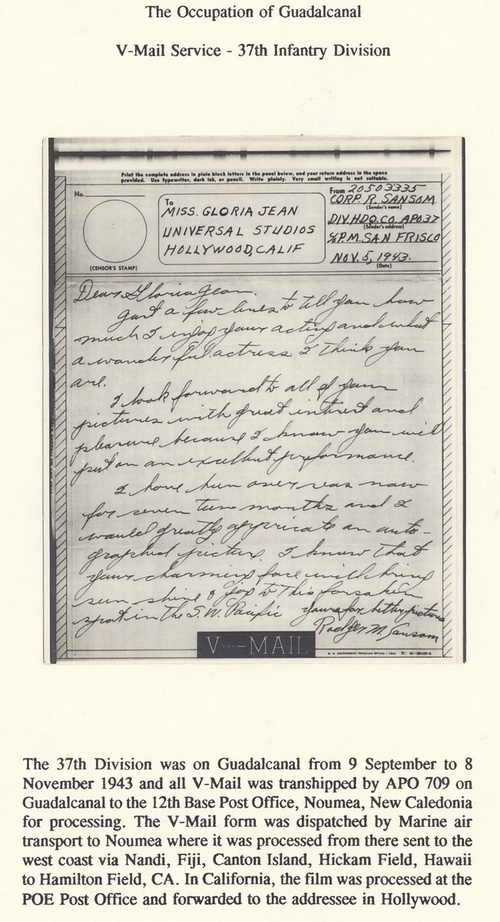 The Occupation of Guadalcanal
V-Mail Service - 37th Infantry Division
Print the complete address in plain block letters in the panel below, and your return address in the space
provided. Use typewriter, dark ink, or pencil. Write plainly. Very small writing is not suitable.
No.
(CENSOR'S STAMP)
To
MISS. GLORIA JEAN
UNIVERSAL STUDIOS
HOLLYWOOD, CALIF
From 20503335
CORP. R. SANSOM
(Sender's name)
DIV. HDQ. CO. APO 37
(Sender's address)
℅ P.M. SAN FRISCO
NOV. 5, 1943.
(Date)
Dear Gloria Jean.
Just a few lines to tell you how
much I enjoy your acting and what
a wonderful actress I think you
are.
I look forward to all of your
pictures with great interest and
pleasure because I know you will
put on an excellent performance.
I have been over seas now
for seven teen months and I
would greatly appricate an auto-
graphed picture. I know that
your charming face with bring
sun shine & joy to this forsaken
spot in the S.W. Pacific
yours for better pictures
Rodger M. Sansom
V···—MAIL
The 37th Division was on Guadalcanal from 9 September to 8
November 1943 and all V-Mail was transhipped by APO 709 on
Guadalcanal to the 12th Base Post Office, Noumea, New Caledonia
for processing. The V-Mail form was dispatched by Marine air
transport to Noumea where it was processed from there sent to the
west coast via Nandi, Fiji, Canton Island, Hickam Field, Hawaii
to Hamilton Field, CA. In California, the film was processed at the
POE Post Office and forwarded to the addressee in Hollywood.